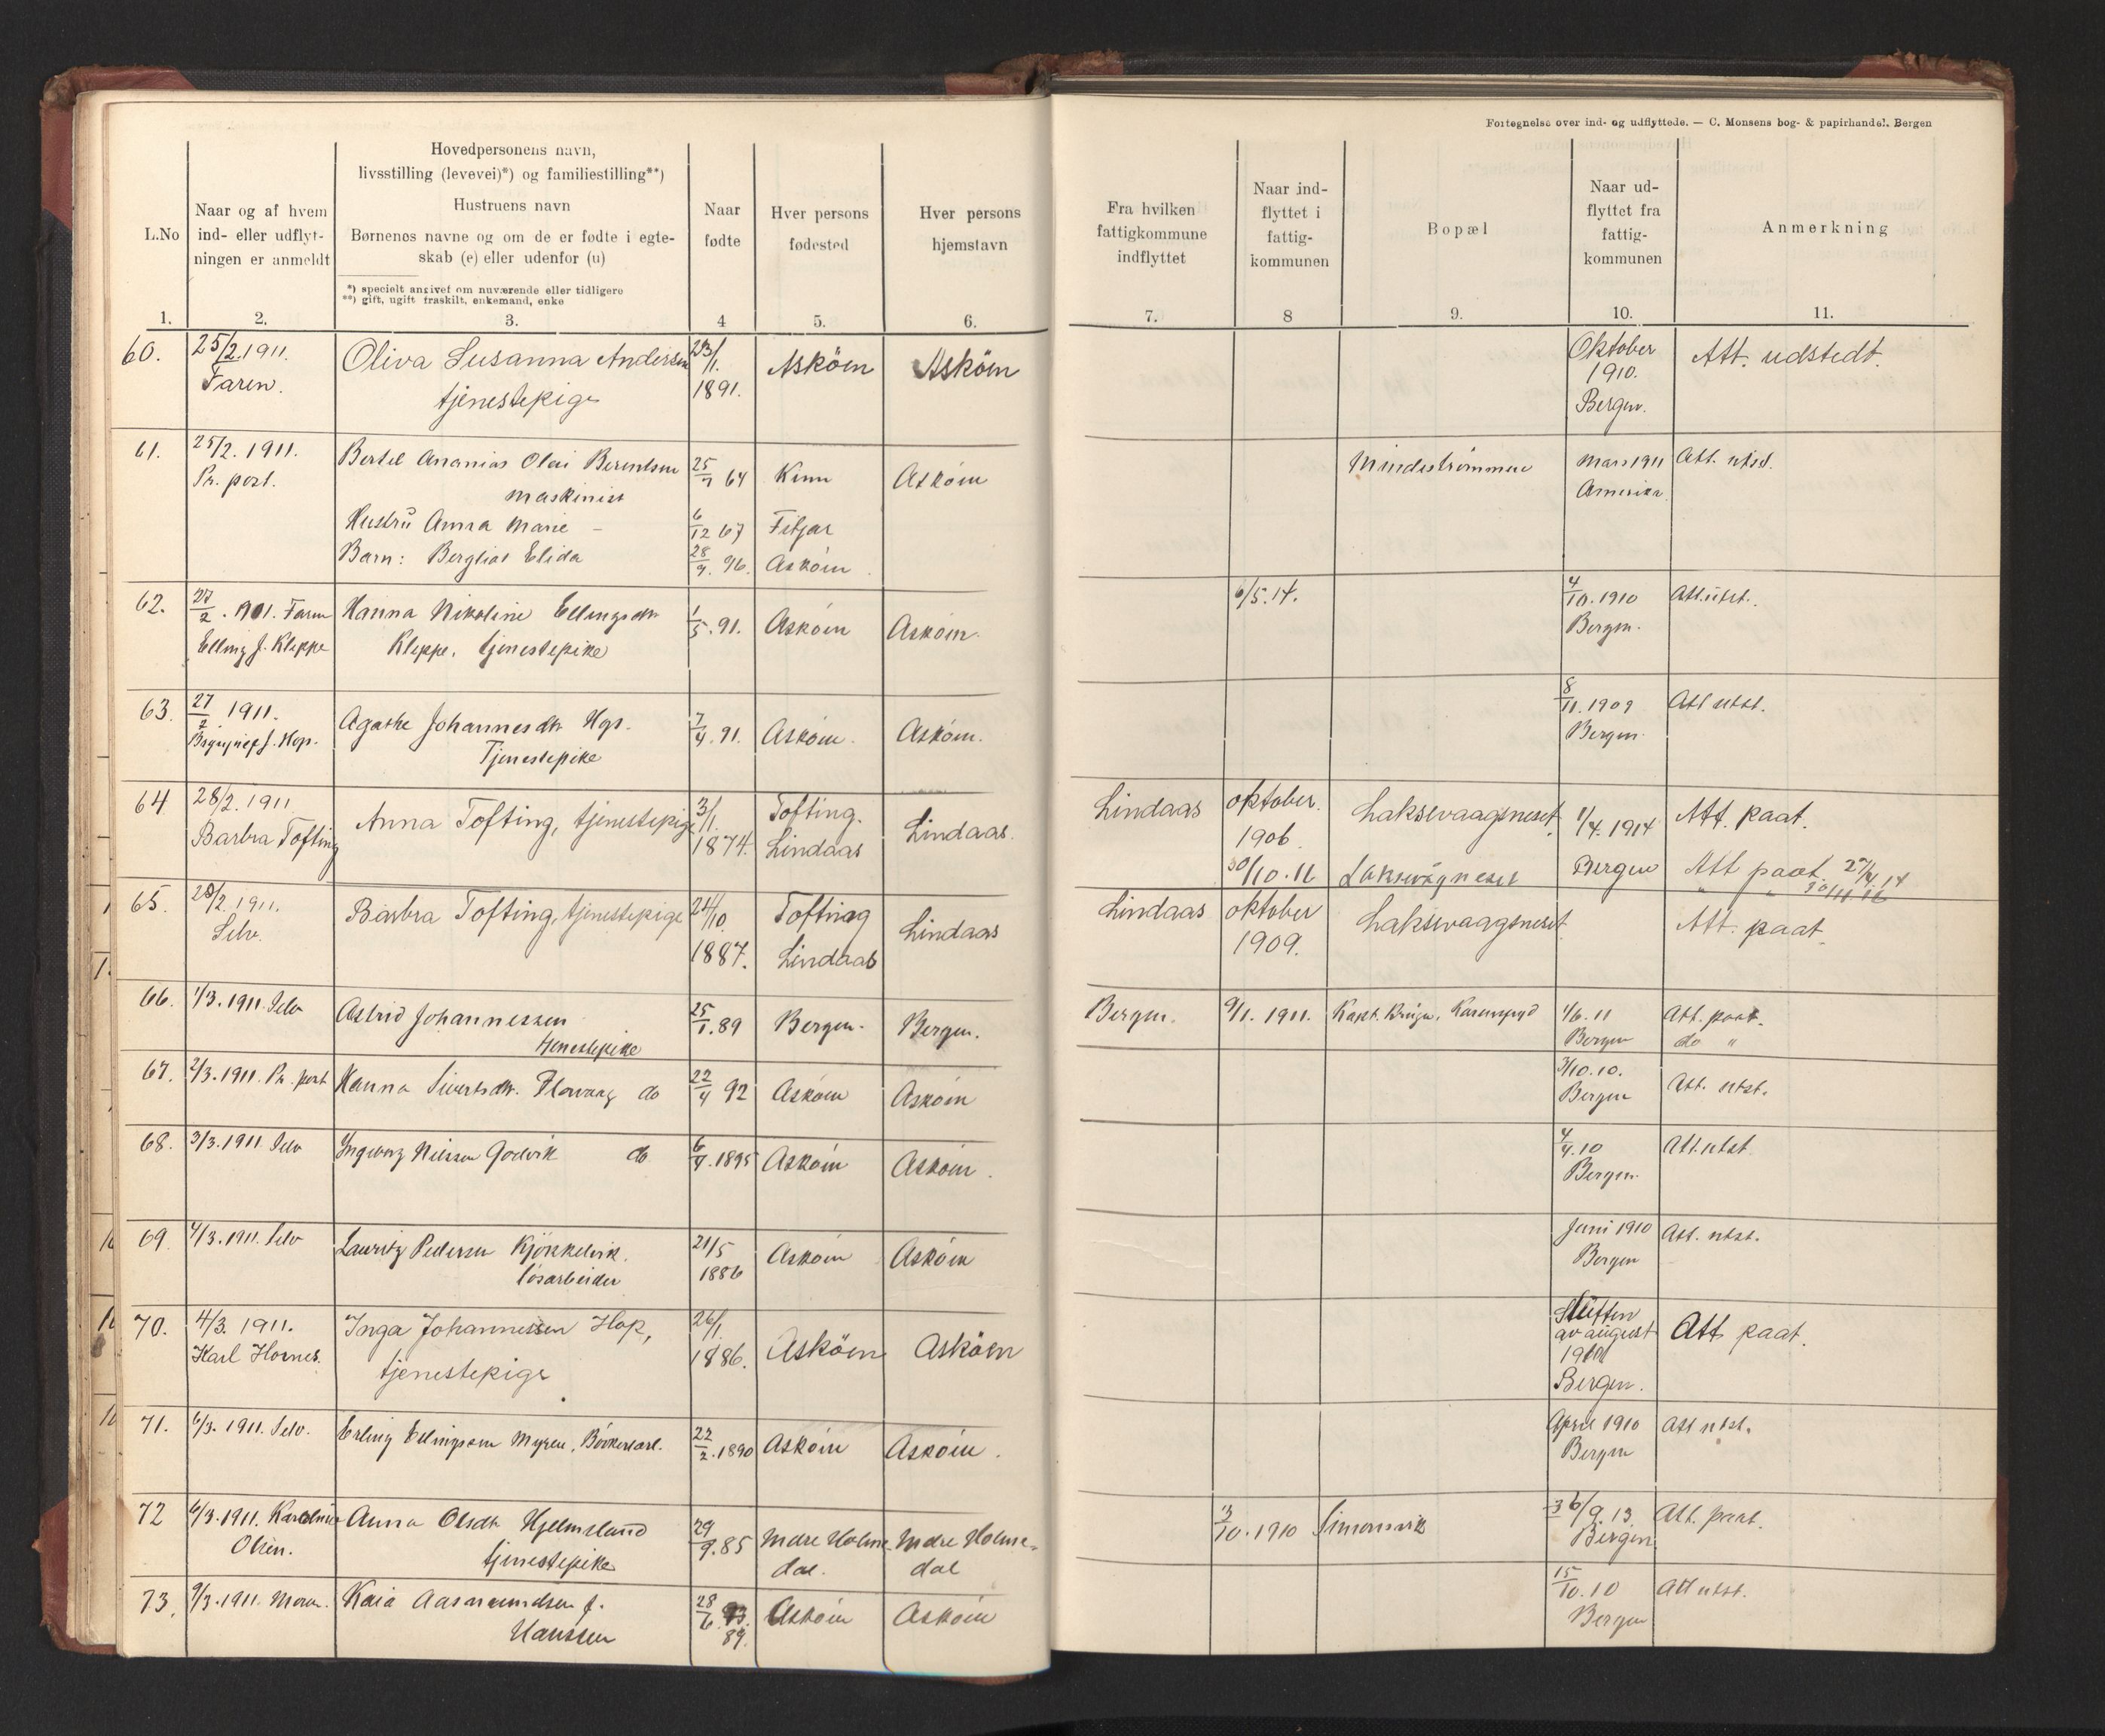 Fortegnelse over ind- og udflyttede. — C. Monsens bog- & papirhandel. Bergen
L.No
Naar og af hvem
ind- eller udflyt-
ningen er anmeldt
Hovedpersonens navn,
livsstilling (levevei)*) og familiestilling**)
Hustruens navn
Børnenes navne og om de er fødte i egte-
skab (e) eller udenfor (u)
*) specielt angivet om nuværende eller tidligere
**) gift, ugift fraskilt, enkemand, enke
Naar
fødte
Hver persons
fødested
Hver persons
hjemstavn
Fra hvilken
fattigkommune
indflyttet
Naar ind-
flyttet i
fattig-
kommunen
Bopæl
Naar ud-
flyttet fra
fattig-
kommunen
Anmerkning
1. 2. 3. 4 5. 6. 7. 8 9. 10. 11.
60. 25/2.1911. Oliva Susanna Andersen 23/1. Asköen Asköen Oktober Att. udstedt.
Faren. tjenestepige 1891. 1910.
Bergen.
61. 25/2.1911. Bertel Ananias Olai Berentsen 25/7 64 Kinn Asköen Mindeströmmen Mars 1911 Att. utst.
Pr. post. maskinist Amerika
Hustru Anna Marie – 6/12 67 Fitjar
Barn: Bergliot Elida 28/9. 96. Asköen
62. 27/2. 1911. Faren Hanna Nikoline Ellingsdtr 1/5.91. Asköen Asköen. 6/5.14. 4/10.1910 Att. utst.
Elling J. Kleppe Kleppe. tjenestepike Bergen.
63. 27/2. 1911. Agathe Johannesdtr Hop. 7/4.91. Asköen. Asköen. 8/11.1909 Att utst.
J. Hop. Tjenestepike Bergen.
64 28/2.1911 Anna Tofting, tjenestepige 3/1. Tofting. Lindaas. Lindaas oktober. Laksevaagsneset 1/4.1914 Att. paat.
Barbra Tofting 1874. Lindaas 1906.
30/10.11 Laksevågneset Bergen Att paat. 27/4 14
" " 30/11.16
65. 28/2.1911. Barbra Tofting, tjenestepige 24/10. Tofting Lindaas Lindaas oktober Laksevaagsneset Att. paat.
Selv. 1887. Lindaas 1909.
66. 1/3.1911. Selv Astrid Johannessen 25/1.89 Bergen. Bergen. Bergen. 9/1. 1911. Kapt. Krüger, 1/6.11 Att. paat.
tjenestepike Bergen do "
67. 2/3.1911. Pr. post Hanna Sivertsdtr. Florvaag do 22/4 92 Asköen Asköen 3/10.10. Att. utst.
Bergen
68. 3/3.1911. Selv Ingeborg Nilssen Godvik do 6/4.1895 Asköen Asköen. 4/4.10 Att. utst
Bergen.
69 4/3.1911. Selv Lauritz Pedersen Kjökkelvik. 21/5 Asköen Asköen Juni 1910 Att. utst.
lösarbeider 1886 Bergen
70. 4/3. 1911. Inga Johannessen Hop, 26/1. Asköen Asköen Slutten Att paat.
Karl Hornes. tjenestepige 1886. av august
1910
Bergen.
71. 6/3. 1911. Selv. Erling Ellingsen Myren, 22/2.1890 Asköen Asköen. April 1910 Att utst.
Bergen
72 6/3.1911. Karoline Anna Olsdtr Hjelmeland 29/9.85 Indre Holme- Indre Holme- 3/10.1910 Simonsvik 6/9.13. Att. paat.
Olsen. tjenestepike dal. dal Bergen
73. 9/3.1911. Moren. Kaia Aasmundsen f. 28/6 Asköen Asköen 15/10.10 Att utst.
Hanssen 89. Bergen